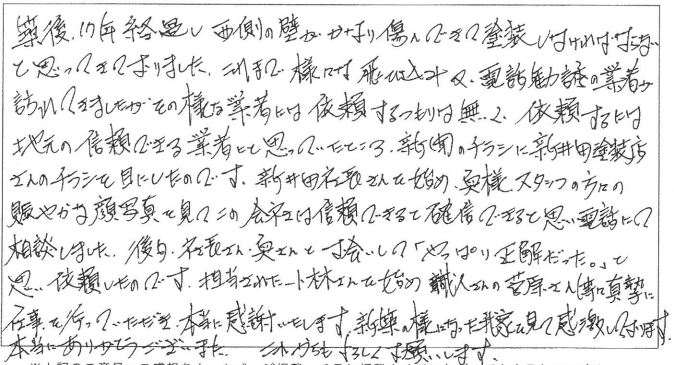 築後、17年経過し西側の壁がかなり傷んできて塗装しなければならない
と思ってきておりました。これまで様には飛び込みや、電話勧誘の業者が
訪れてきましたがその様な業者には依頼するつもりは無く、依頼するには
地元の信頼できる業者にと思っていたところ、新聞のチラシに新井田塗装店
さんのチラシを目にしたのです。新井田社長さんを始め、奥様、スタッフの方々の
賑やかな顔写真を見てこの会社は信頼できると確信できると思い電話にて
相談しました。後日、社長さん、奥さんと お会いして「やっぱり正解だった。」と
思い依頼したのです。担当された小林さんを始め 職人さんの菅原さん 真摯に
仕事を行っていただき、本当に感謝いたします。新築の様になった我家を見て感激しております。
本当にありがとうございました。 これからもよろしくお願いします。